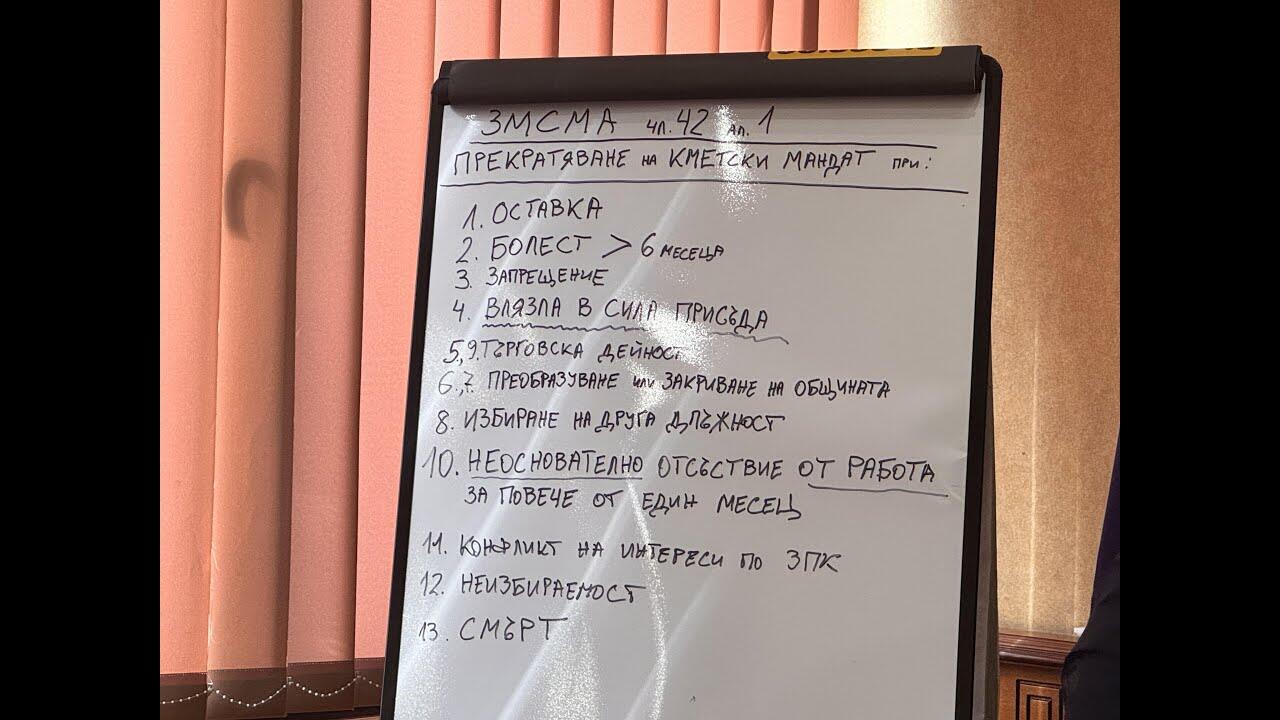 ЗМСМА чл. 42 ал. 1
ПРЕКРАТЯВАНЕ на КМЕТСКИ МАНДАТ при:
1. ОСТАВКА
2. БОЛЕСТ > 6 месеца
3. ЗАПРЕЩЕНИЕ
4. ВЛЯЗЛА В СИЛА ПРИСЪДА
5,9. ТЪРГОВСКА ДЕЙНОСТ
6.,7. ПРЕОБРАЗУВАНЕ или ЗАКРИВАНЕ НА ОБЩИНАТА
8. ИЗБИРАНЕ НА ДРУГА ДЛЪЖНОСТ
10. НЕОСНОВАТЕЛНО ОТСЪСТВИЕ ОТ РАБОТА
ЗА ПОВЕЧЕ ОТ ЕДИН МЕСЕЦ
11. КОНФЛИКТ НА ИНТЕРЕСИ ПО ЗПК
12. НЕИЗБИРАЕМОСТ
13. СМЪРТ